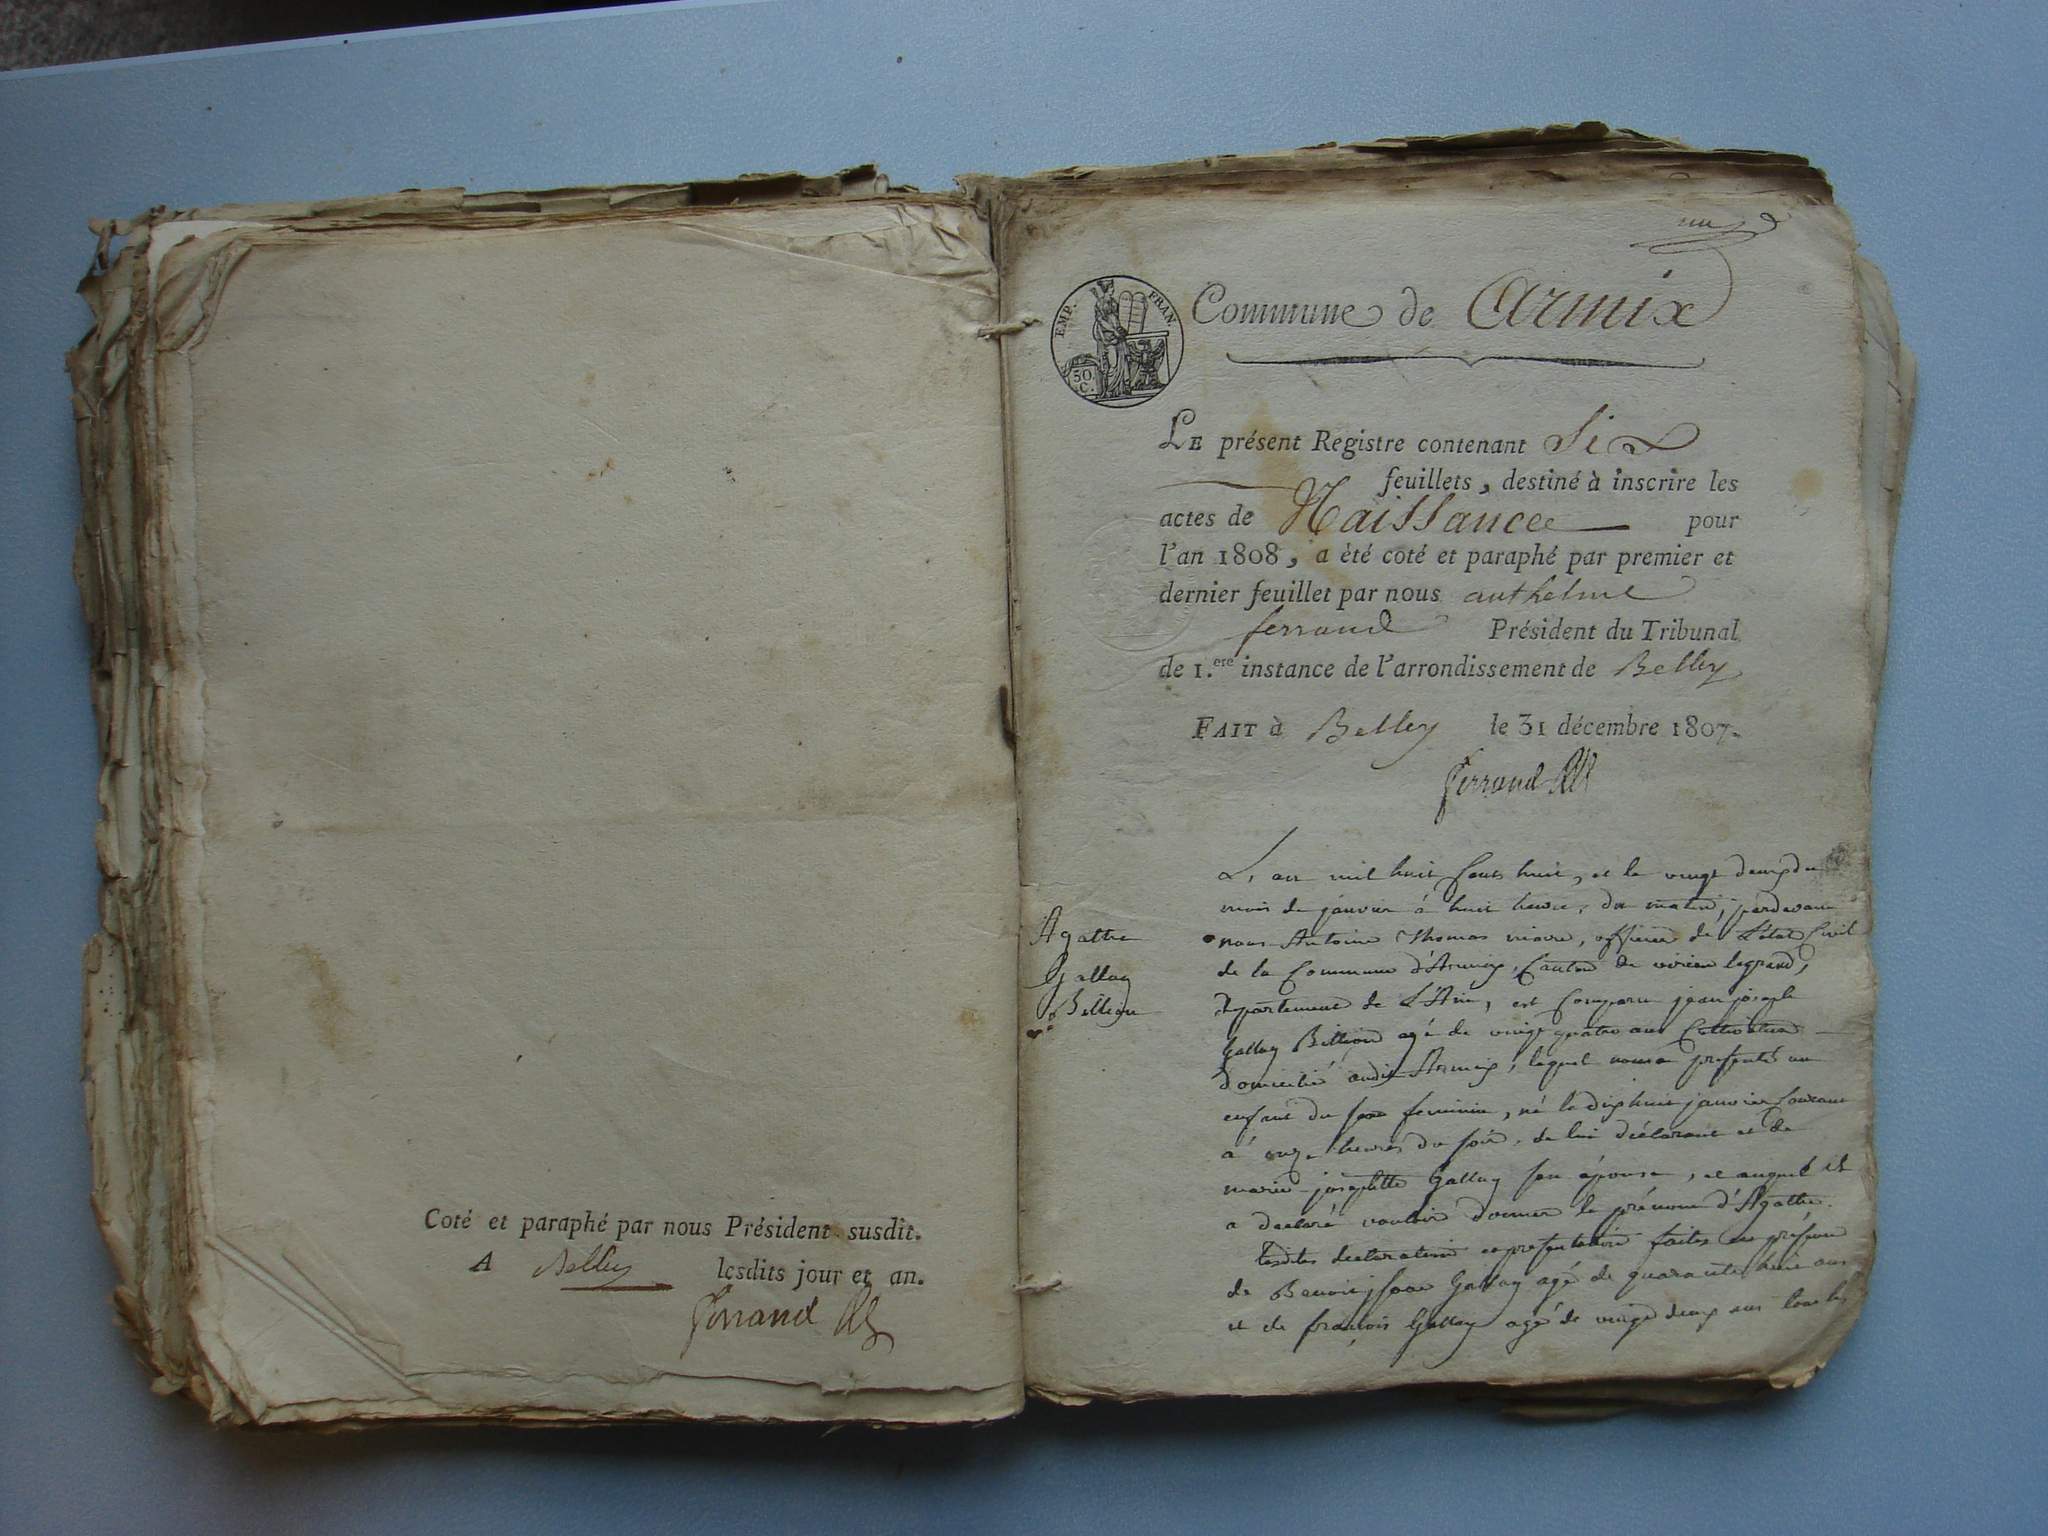 Coté et paraphé par nous Président susdit.
A Belley lesdits jour et an.
Ferrand
un
EMP. FRAN.
50 C.
Commune de Armix
LE présent Registre contenant Six
feuillets, destiné à inscrire les
actes de Naissance pour
l'an 1808, a été coté et paraphé par premier et
dernier feuillet par nous anthelme
ferrand Président du Tribunal
de 1.ere instance de l'arrondissement de Belley
FAIT à Belley le 31 décembre 1807.
Ferrand
Agathe
Gallay
Billion
L'an mil huit Cents huit, et le vingt deux du
mois de janvier à huit heures du matin, pardevant
nous Antoine Thomas maire, officier de L'état Civil
de la Commune d'Armix, Canton de virieu legrand,
département de L'Ain, est Comparu jean joseph
Gallay Billion agé de vingt quatre ans Cultivateur
domicilié audit Armix, lequel nous a presenté un
enfant du sexe feminin, né le dix huit janvier Courant
à onze heures du soir, de lui déclarant et de
marie josephte Gallay son épouse, et auquel il
a declaré vouloir donner le prénom d'Agathe.
lesdites declaration et presentation faites en présence
de Benoit isaac Gallay agé de quarante huit ans
et de françois Gallay agé de vingt deux ans tous les